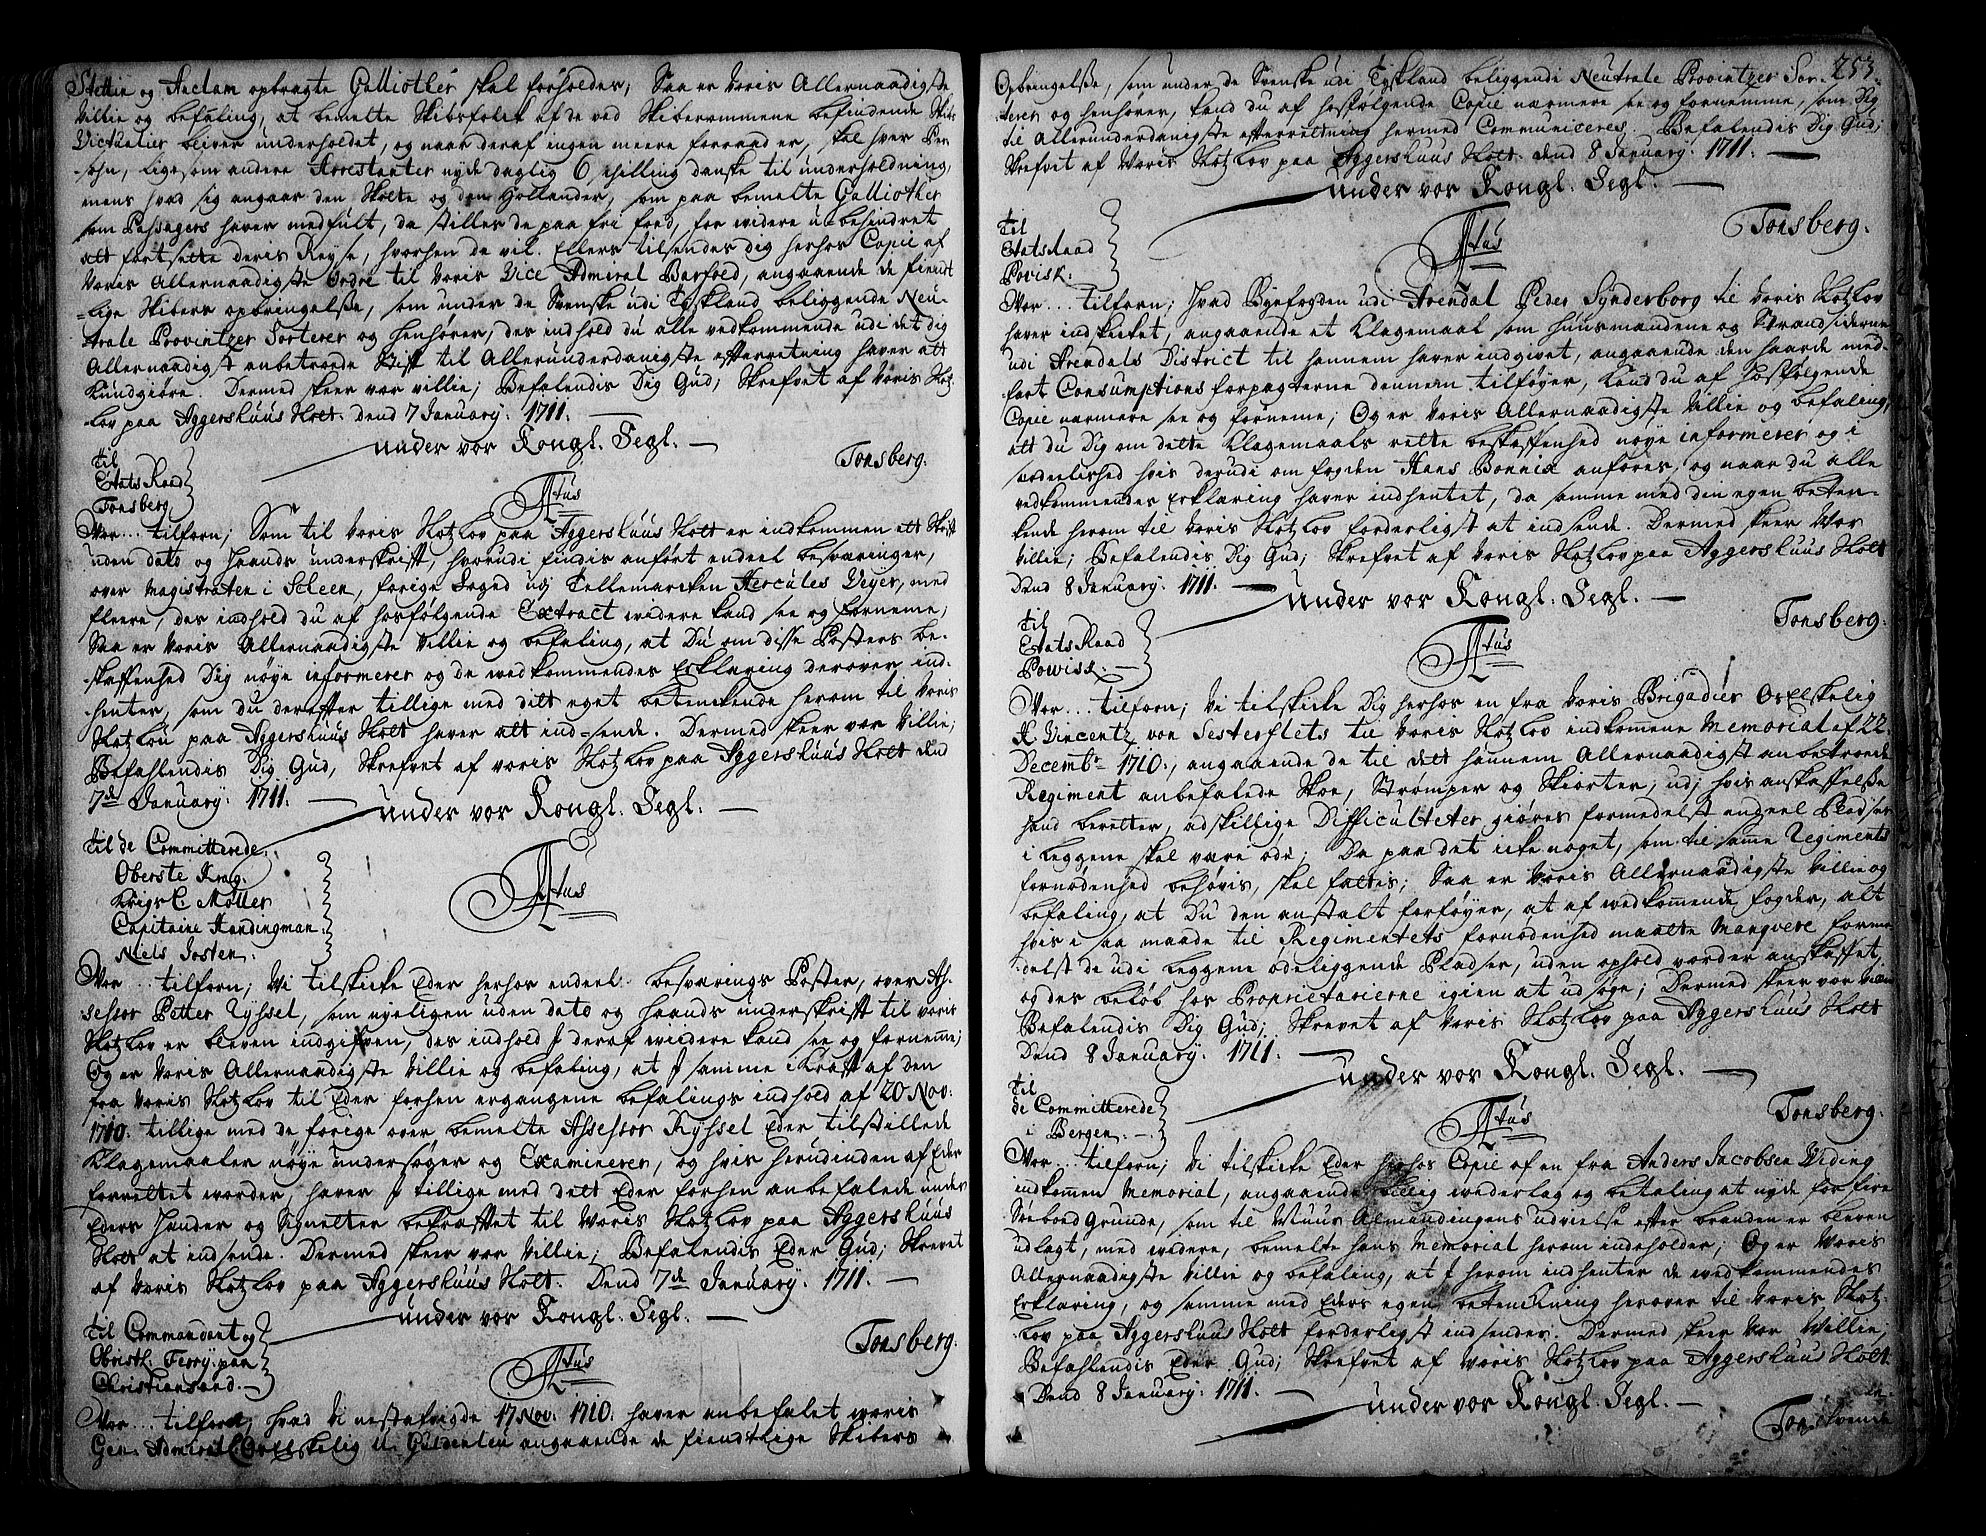 Stettin og Anclam opbragte Galliother skal forholdes, Saa er Voris Allernaadigste
Villie og befaling, at bemelte Skibsfolck af de ved Skiberommene befindende Skibs
Victualier bliver underholdet, og naar deraf ingen meere forraad er, skal hver Per-
sohn, ligesom andere Arrestanter nyde daglig 6 skilling danske til underholdning,
mens hvad sig angaar den Skotte og den Hollænder, som paa bemelte Galliother
som Passagers haver medfult, da stilles de paa fri food, for widere ubehindret
att fortsette deris Reyse, hvorhen de vil. Ellers tilsendes dig herhos Copie af
Voris Allernaadigste Ordre til Voris Vice Admiral Barfoed, angaaende de fiendt-
lige Skibers opbringelsse, som under de Svenske udi Tyskland beliggende Neu-
trale Provintzer Sorterer og henhører, des indhold du alle vedkommende udi det dig
Allernaadigst anbetroede Stift til Allerunderdanigste efterretning haver att
kundgiøre. Dermed skeer vor villie; Befalendis Dig Gud; Skrefvet af Voris Slotz-
lov paa Aggershuus Slott dend 7 January. 1711.
under vor Kongl. Segl.
Tonsberg.
til
Etats Raad
Tonsberg
Atus
Vor... tilforn; Som til Voris Slotzlov paa Aggershuus Slott er indkommen ett Skrift
uden dato og haands underskrift, hvorudi findis anført endeel besværinger,
over Magistraten i Scheen, forige Foged udj Tellemarcken Hercules Weyer, med
fleere, des indhold du af hosfølgende Extract widere kand see og forneme;
Saa er Voris Allernaadigste Villie og befaling, at Du om disse Posters be-
skaffenhed Dig nøye informerer og de wedkommendes Erklæring derover ind-
henter, som du derefter tillige med dit eget betenckende herom til Voris
Slotzlov paa Aggershuus Slott haver att indsende. Dermed skeer vor Villie;
Befahlendis Dig Gud, Skrefvet af voris Slotzlov paa Aggershuus Slott den
7de January. 1711.
under vor Kongl. Segl.
til de Committerede
Oberste Krag.
Krigs C. Møller
Capitaine Handingman
Niels Josten.
Atus
Vor... tilforn; Vi tilskicke Eder herhos endeel besværings Poster, over As-
sessor Petter Ryssel, som nyeligen uden dato og haands underskrift til voris
Slotzlov er bleven indgifven, des indhold I deraf widere kand see og forneme;
Og er Voris Allernaadigste Villie og befaling, at I samme i kraft af den
fra Voris Slotzlov til Eder forhen ergangene befalings indhold af 20 Nov:
1710. tillige med de forige over bemelte Assessor Ryssel Eder tilstillede
Klagemaaler nøye undersøger og Examinerer, og hvis herudinden af Eder
forrettet worder, haver I tillige med det Eder forhen anbefalede under
Eders Hænder og Signetter bekræftet til Woris Slotzlov paa Aggershuus
Slott at indsende. Dermed skeer vor Villie; Befalendis Eder Gud; Skrevet
af Voris Slotzlov paa Aggershuus Slott. Dend 7de January. 1711.
under vor Kongl. Segl.
Tonsberg.
til Commandant og
Obristl. Ferry paa
Christiansand.
Atus
Vor... tilforn; hvad Vi nestafvigde 17 Nov: 1710. haver anbefalet woris
Gen. Admiral C. Os Elskelig U. Guldenleu angaaende de fiendtlige Skibers
253.
Opbringelsse, som under de Svenske udi Tyskland beliggende Neutrale Provintzer Sor-
terer og henhører, kand du af hosfølgende Copie nærmere see og fornemme, som Dig
til Allerunderdanigste efterretning hermed Communiceres. Befalendis Dig Gud;
Skrefvet af Voris Slotzlov paa Aggershuus Slott. dend 8 January. 1711.
under vor Kongl. Segl.
Tonsberg.
til
Etatsraad
Povisk.
Atus
Vor... tilforn; Hvad Byefogden udi Arendal Peder Synderborg til Voris Slotzlov
haver indskicket, angaaende et klagemaal som huusmændene og Strandsiderne
udi Arendals District til hannem haver indgivet, angaaende den haarde med-
fart Consumptions forpagterne dennem tilføyer, kand du af hosfølgende
Copie nærmere see og forneme; Og er Voris Allernaadigste Villie og befaling,
att du Dig om dette klagemaals rette beskaffenhed nøye informerer og i
sæderlished hvis derudi om fogden Hans Bonnix anføres, og naar du alle
vedkommendes Erklæring haver indhentet, da samme med din egen beten-
kende herom til Voris Slotzlov forderligst at indsende. Dermed skeer Vor
Villie; Befalendis Dig Gud; Skrefvet af Voris Slotzlov paa Aggershuus Slott
Dend 8 January. 1711.
under vor Kongl. Segl.
Tonsberg.
til
Etats Raad
Powisk.
Atus
Vor... tilforn; Vi tilskicke Dig herhos en fra Voris Brigadier Os Elskelig
H Vincentz von Sesterflets til Voris Slotzlov indkomne Memorial af 22.
Decembr 1710., angaaende de til det hannem Allernaadigst anbetroede
Regiment anbefalede Skoe, Strømper og Skiorter, udj hvis anskaffelsse
hand beretter, adskillige Difficulteter giøres formedelst endeel Pladser
i leggene skal være øde; Da paa det icke noget, som til samme Regiments
fornødenhed behøvis, skal fattis; Saa er Voris Allernaadigste Villie og
befaling, at Du den anstalt forføyer, at af wedkommende fogder, alt
hvis i saa maade til Regimentets fornødenhed maatte Manqvere forme-
delst de udi leggene ødeliggende Pladser, uden ophold vorder anskaffet,
og des beløb hos Proprietarierne igien at udsøge; Dermed skeer vor villie
Befalendis Dig Gud; Skrevet af Voris Slotzlov paa Aggershuus Slott
Dend 8 January. 1711.
under vor Kongl. Segl.
Tonsberg.
til
de Committerede
i Bergen.
Atus
Vor... tilforn; Vi tilskicke Eder herhos Copie af en fra Anders Jacobsen Widing
indkommen Memorial, angaaende billig wederlag og betaling at nyde for fire
Søeboed Grunde, som til Muus Almendingens udvielse efter branden er bleven
udlagt, med widere, bemelte hans Memorial herom indeholder; Og er Woris
Allernaadigste Villie og befaling, at I herom indhenter de wedkommendes
Erklæring, og samme med Eders egen betenckning herover til Voris Slotz-
lov paa Aggershuus Slott forderligst indsender. Dermed skeer Vor Willie;
Befahlendis Eder Gud; Skrefvet af Woris Slotzlov paa Aggershuus Slott
Dend 8 January. 1711.
under vor Kongl. Segl.
Tonsberg.